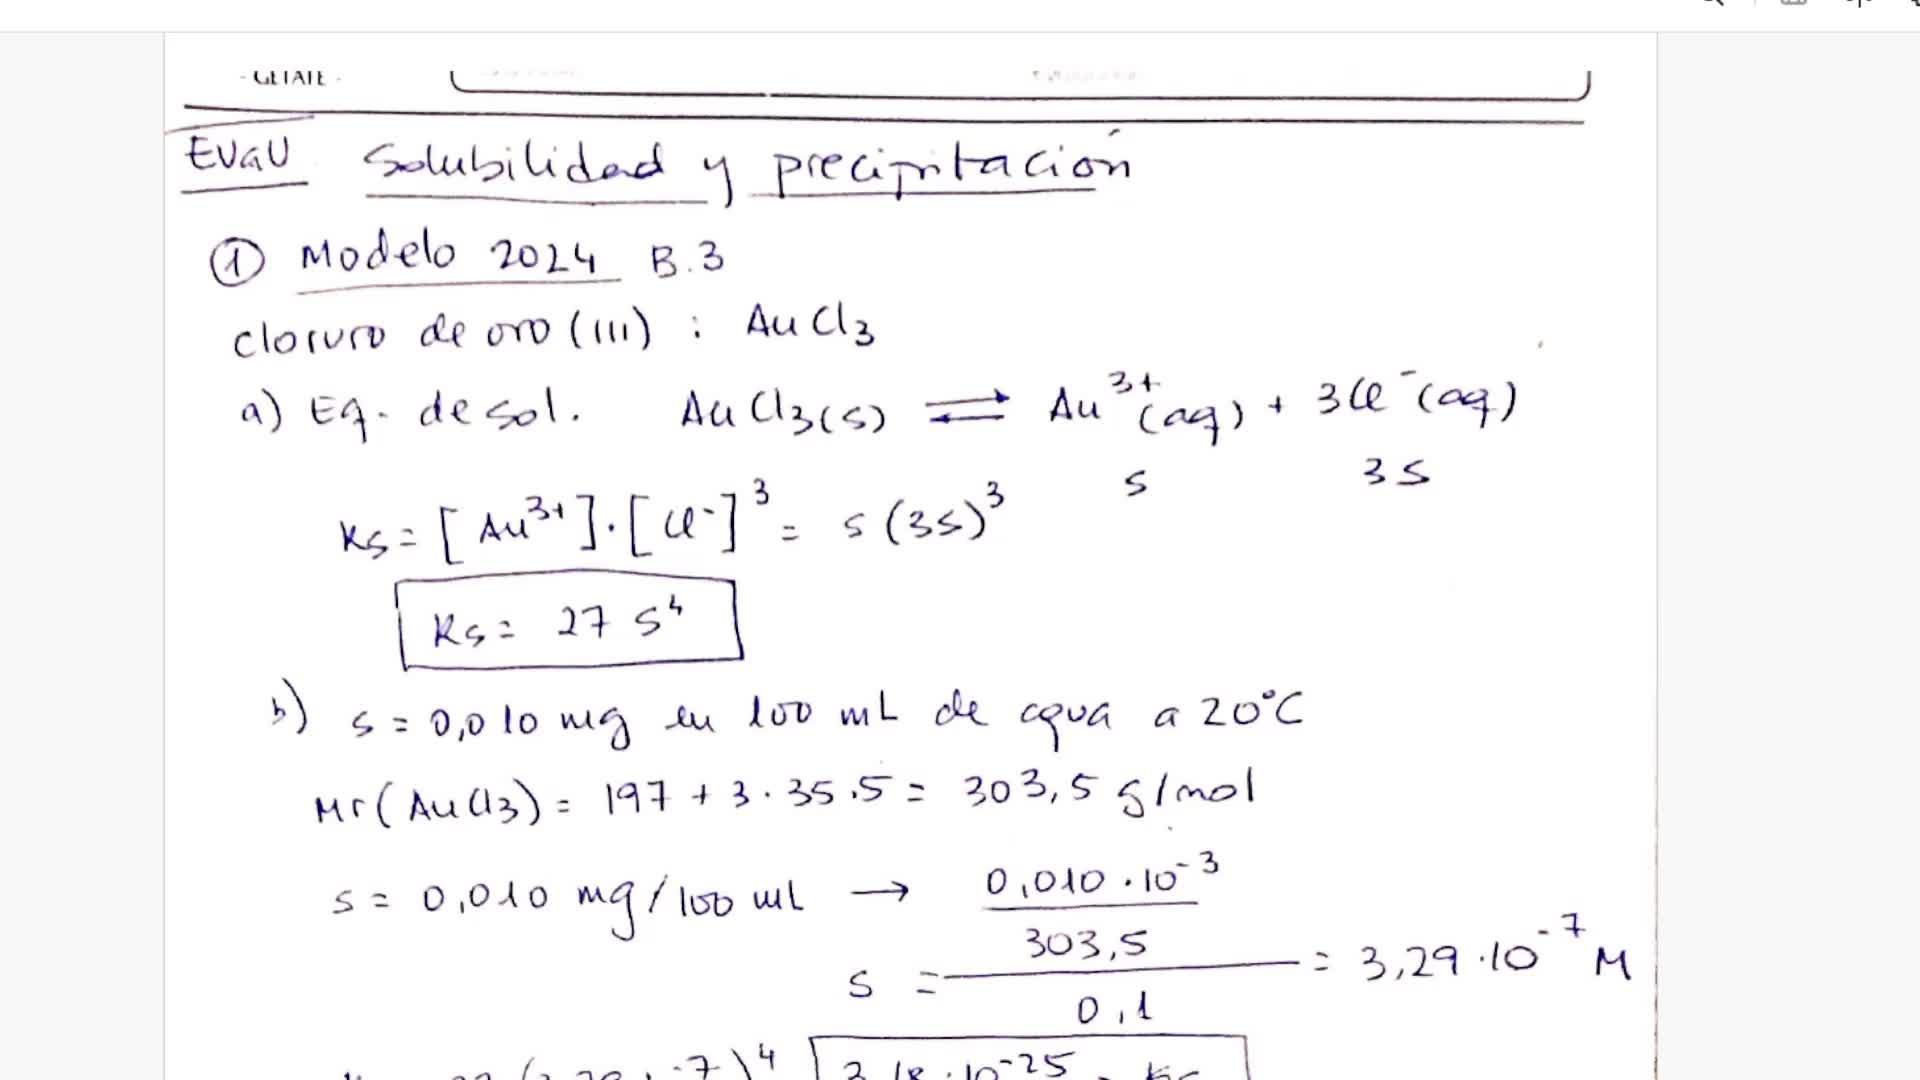 - GETAFE -
EVAU Solubilidad y precipitación
① Modelo 2024 B.3
cloruro de oro (III) : AuCl3
a) Eq. de sol. AuCl3(s) ⇌ Au3+(aq) + 3Cl-(aq)
s 3s
Ks = [Au3+]·[Cl-]3 = s(3s)3
Ks = 27 s4
b) s = 0,010 mg en 100 mL de agua a 20°C
Mr(AuCl3) = 197 + 3·35.5 = 303,5 g/mol
s = 0,010 mg/100 mL → 0,010·10-3
303,5
s = = 3,29·10-7 M
0,1